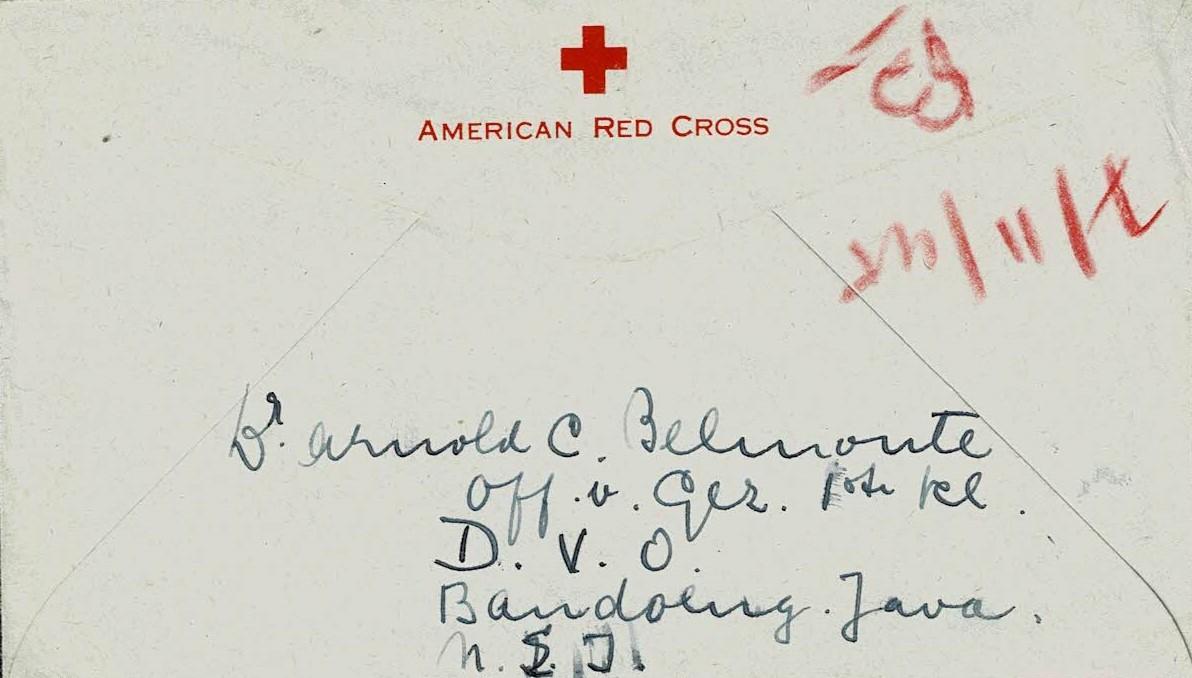 AMERICAN RED CROSS
Dr. Arnold C. Belmonte
Off. v. Gez. 1ste kl.
D. V. O.
Bandoeng. Java.
N. E. I.